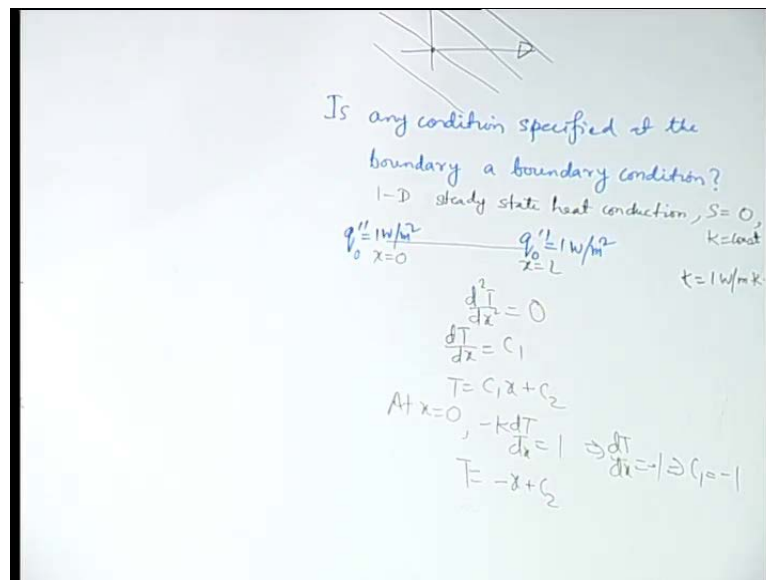 Is any condition specified at the
boundary a boundary condition?
1-D steady state heat conduction, S=0,
k=const
q₀''=1W/m² q₀''=1W/m²
x=0 x=L
k=1W/mK
d²T/dx² = 0
dT/dx = C₁
T = C₁x + C₂
At x=0, -k dT/dx = 1 ⇒ dT/dx = -1 ⇒ C₁ = -1
T = -x + C₂